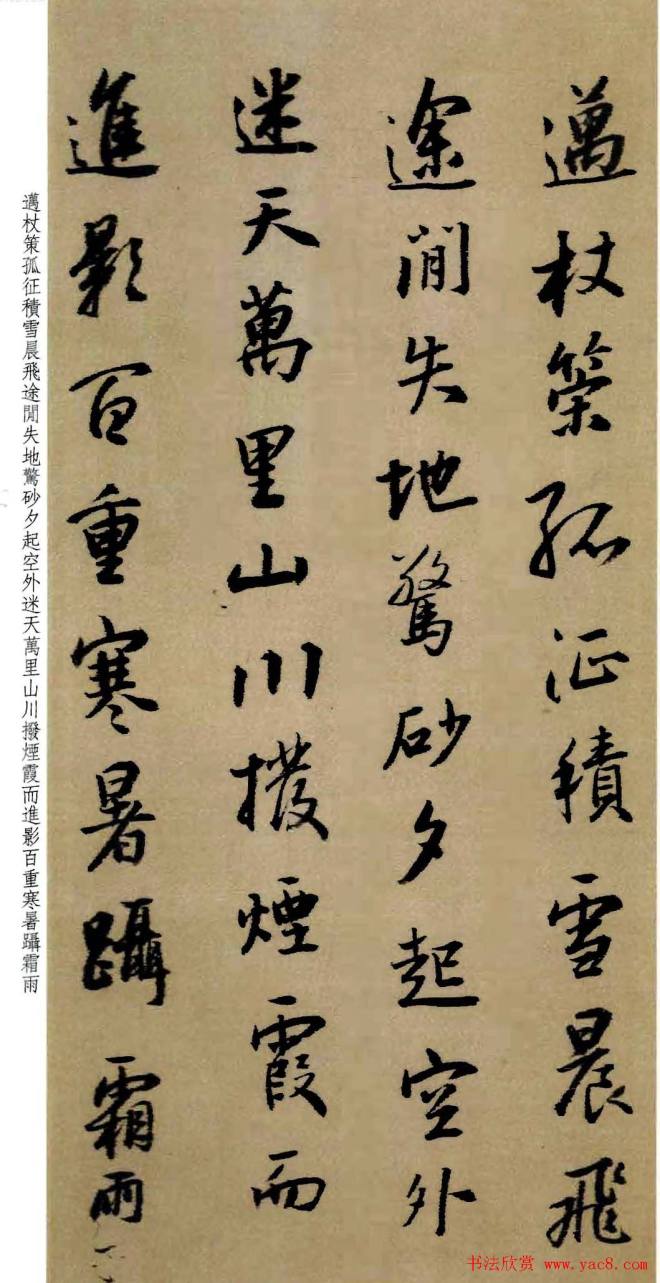 邁杖策孤征積雪晨飛
途閒失地驚砂夕起空外
迷天萬里山川撥煙霞而
進影百重寒暑躡霜雨
邁杖策孤征積雪晨飛途閒失地驚砂夕起空外迷天萬里山川撥煙霞而進影百重寒暑躡霜雨
书法欣赏 @ www.yac8.com